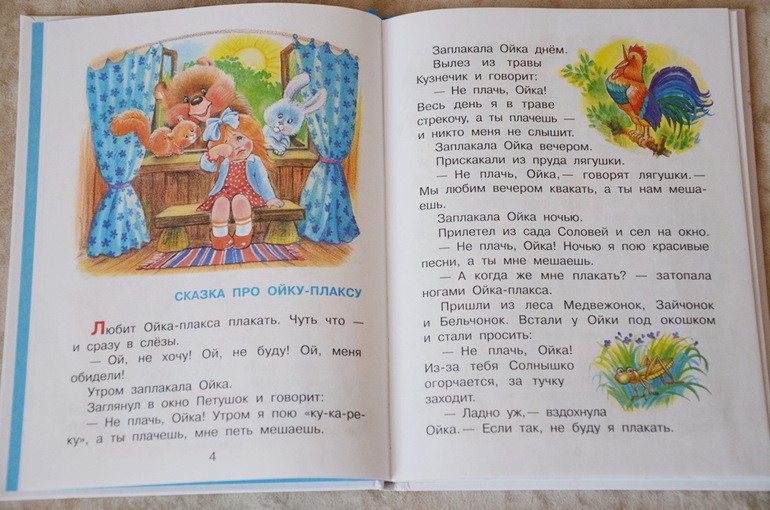 СКАЗКА ПРО ОЙКУ-ПЛАКСУ
Любит Ойка-плакса плакать. Чуть что —
и сразу в слёзы.
— Ой, не хочу! Ой, не буду! Ой, меня
обидели!
Утром заплакала Ойка.
Заглянул в окно Петушок и говорит:
— Не плачь, Ойка! Утром я пою «ку-ка-ре-
ку», а ты плачешь, мне петь мешаешь.
4
Заплакала Ойка днём.
Вылез из травы
Кузнечик и говорит:
— Не плачь, Ойка!
Весь день я в траве
стрекочу, а ты плачешь —
и никто меня не слышит.
Заплакала Ойка вечером.
Прискакали из пруда лягушки.
— Не плачь, Ойка,— говорят лягушки.—
Мы любим вечером квакать, а ты нам меша-
ешь.
Заплакала Ойка ночью.
Прилетел из сада Соловей и сел на окно.
— Не плачь, Ойка! Ночью я пою красивые
песни, а ты мне мешаешь.
— А когда же мне плакать? — затопала
ногами Ойка-плакса.
Пришли из леса Медвежонок, Зайчонок
и Бельчонок. Встали у Ойки под окошком
и стали просить:
— Не плачь, Ойка!
Из-за тебя Солнышко
огорчается, за тучку
заходит.
— Ладно уж,— вздохнула
Ойка.— Если так, не буду я плакать.